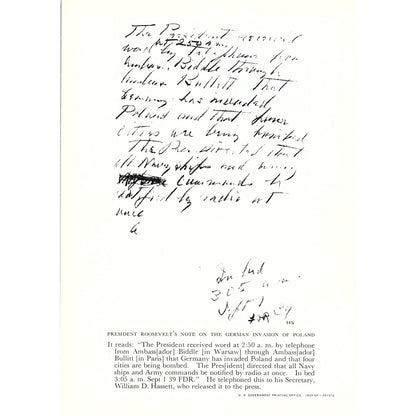 The President received
word at 2:50 a.m.
by telephone from
Ambass. Biddle through
Ambass Bullitt that
Germany has invaded
Poland and that four
cities are being bombed
The Pres. directed that
all Navy ships and Army
commands be
notified by radio at
once
In bed
3 05 a.m.
Sept 1
FDR 39
PRESIDENT ROOSEVELT'S NOTE ON THE GERMAN INVASION OF POLAND
It reads: "The President received word at 2:50 a. m. by telephone
from Ambass[ador] Biddle [in Warsaw] through Ambas[ador]
Bullitt [in Paris] that Germany has invaded Poland and that four
cities are being bombed. The Pres[ident] directed that all Navy
ships and Army commands be notified by radio at once. In bed
3:05 a.m. Sept 1 39 FDR." He telephoned this to his Secretary,
William D. Hassett, who released it to the press.
U. S. GOVERNMENT PRINTING OFFICE